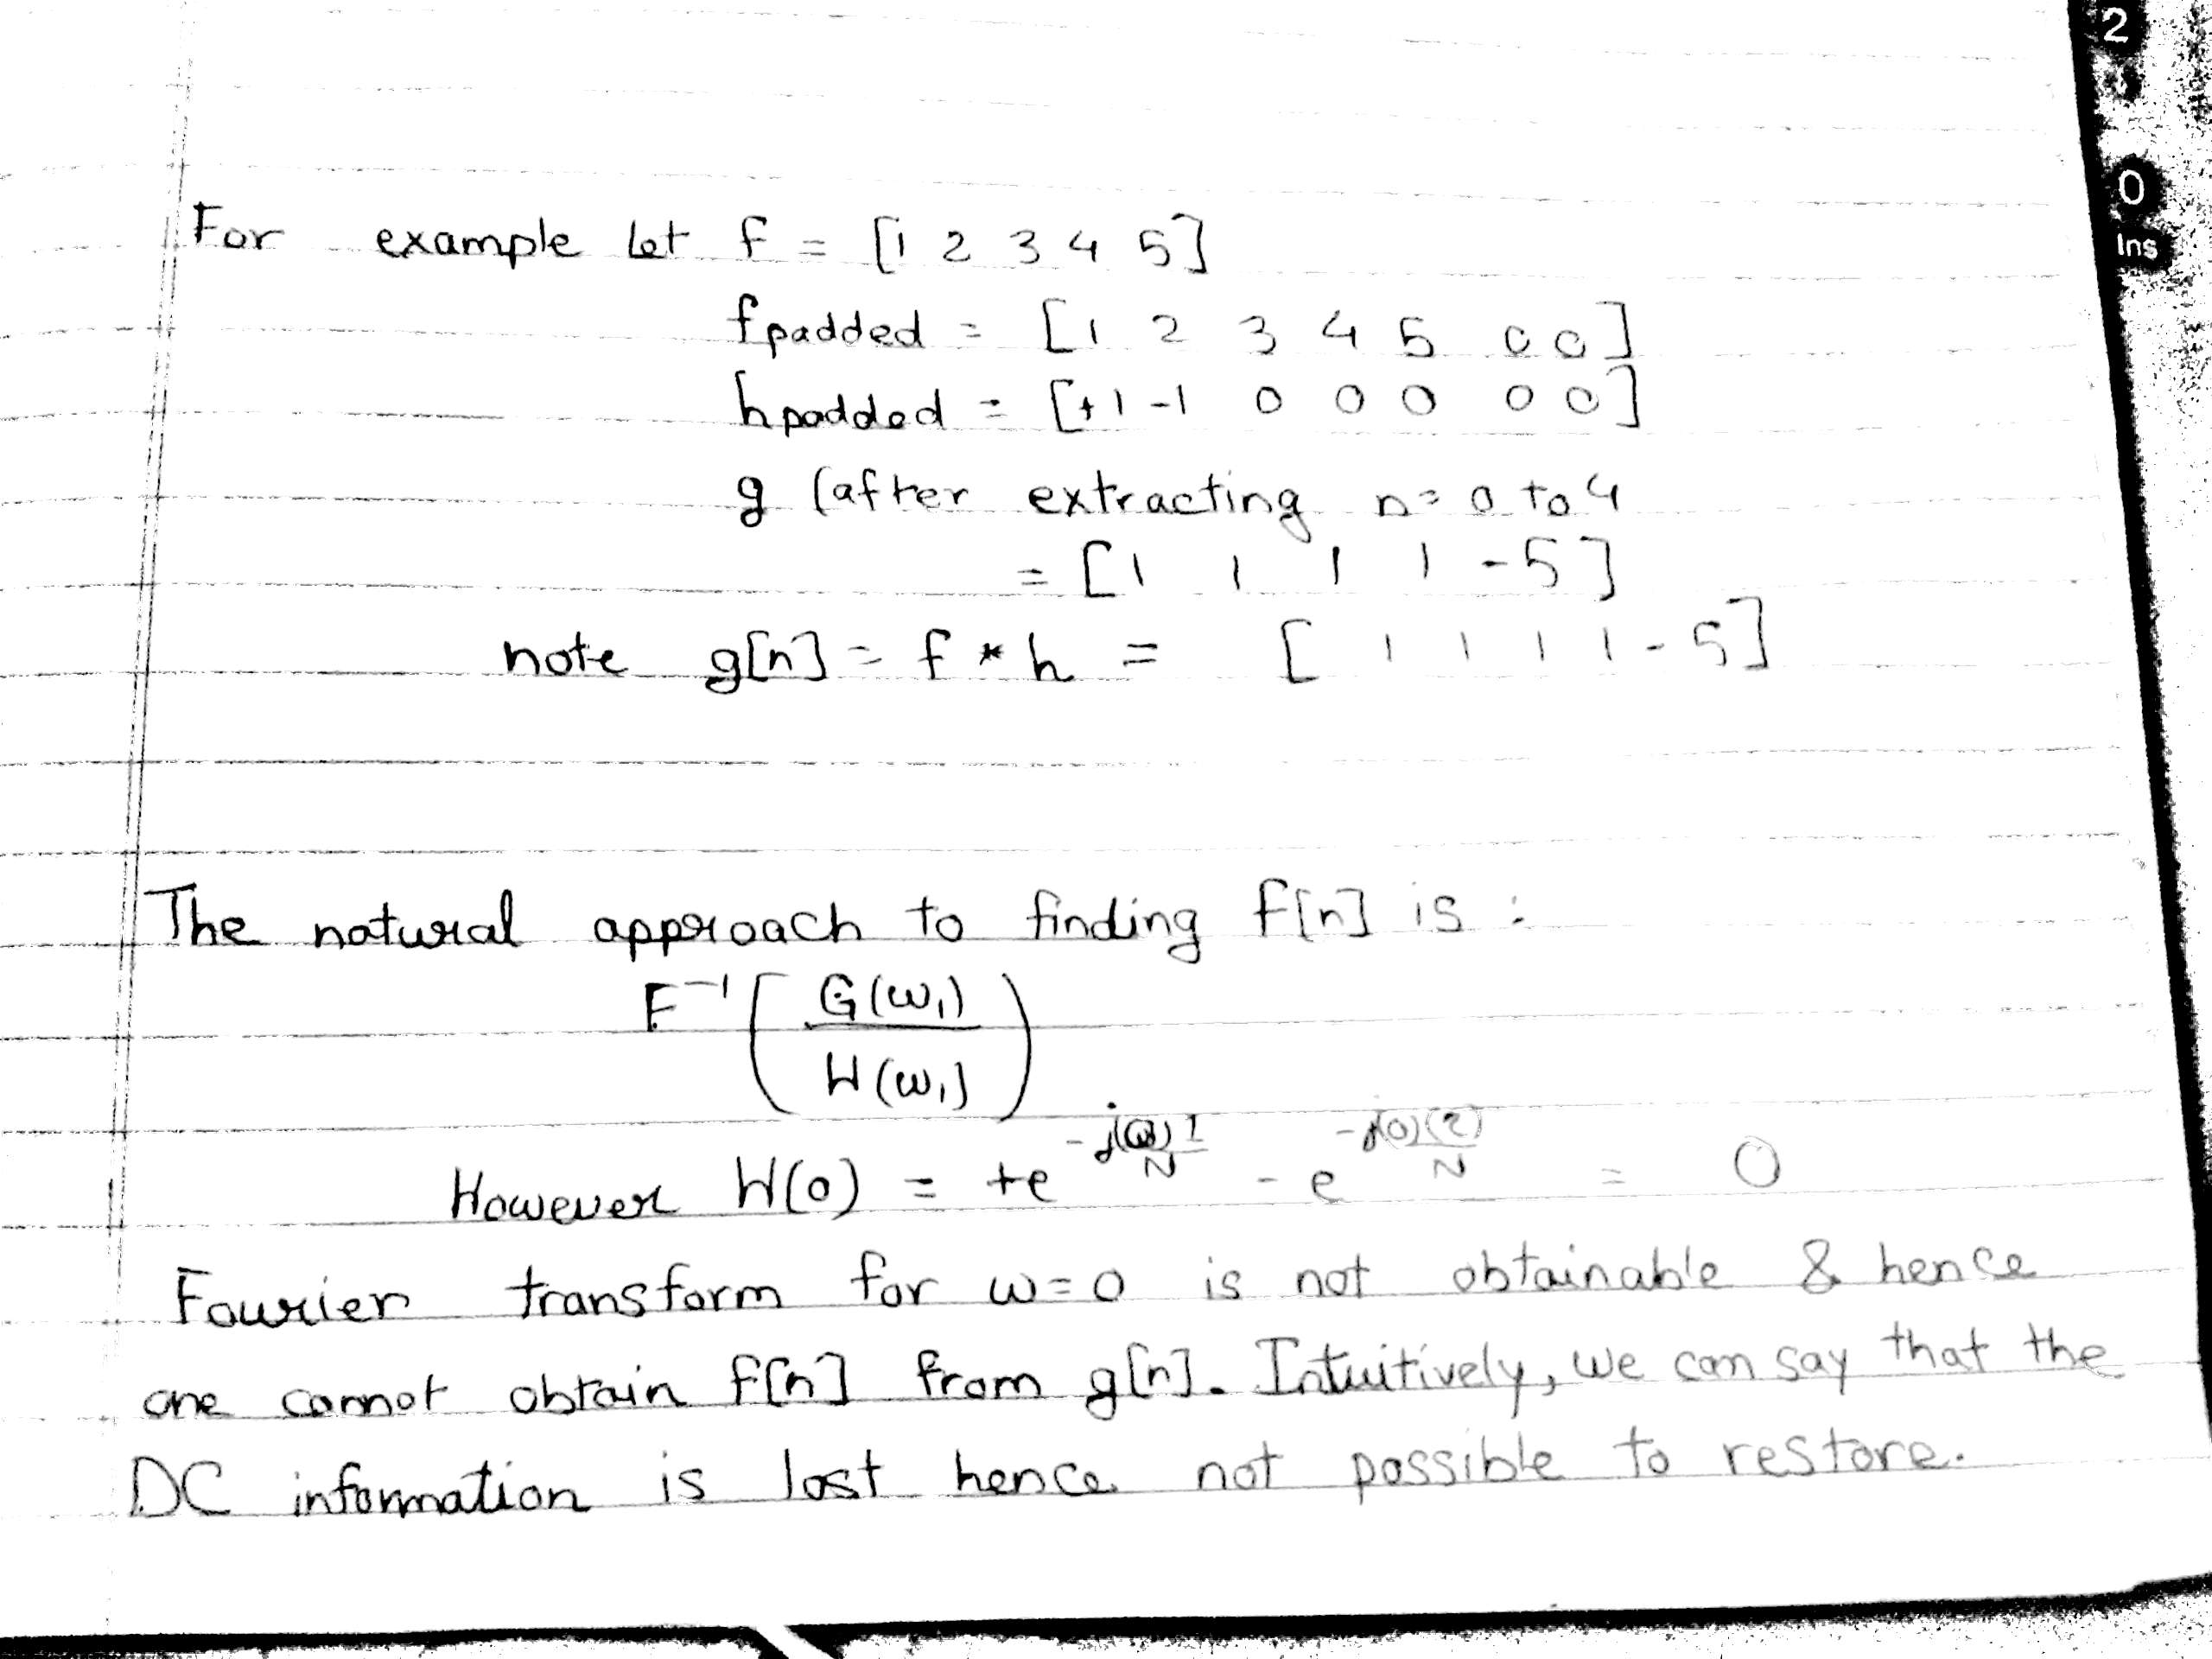 2
0
Ins
For example let f = [1 2 3 4 5]
fpadded = [1 2 3 4 5 0 0]
hpadded = [+1 -1 0 0 0 0 0]
g (after extracting n=0 to 4
= [1 1 1 1 -5]
note g[n] = f * h = [1 1 1 1 -5]
The natural approach to finding f[n] is :
F⁻¹ ( G(ω₁) / H(ω₁) )
However H(0) = +e^(-j(0)1/N) - e^(-j(0)(2)/N) = 0
Fourier transform for ω=0 is not obtainable & hence
one cannot obtain f[n] from g[n]. Intuitively, we can say that the
DC information is lost hence not possible to restore.